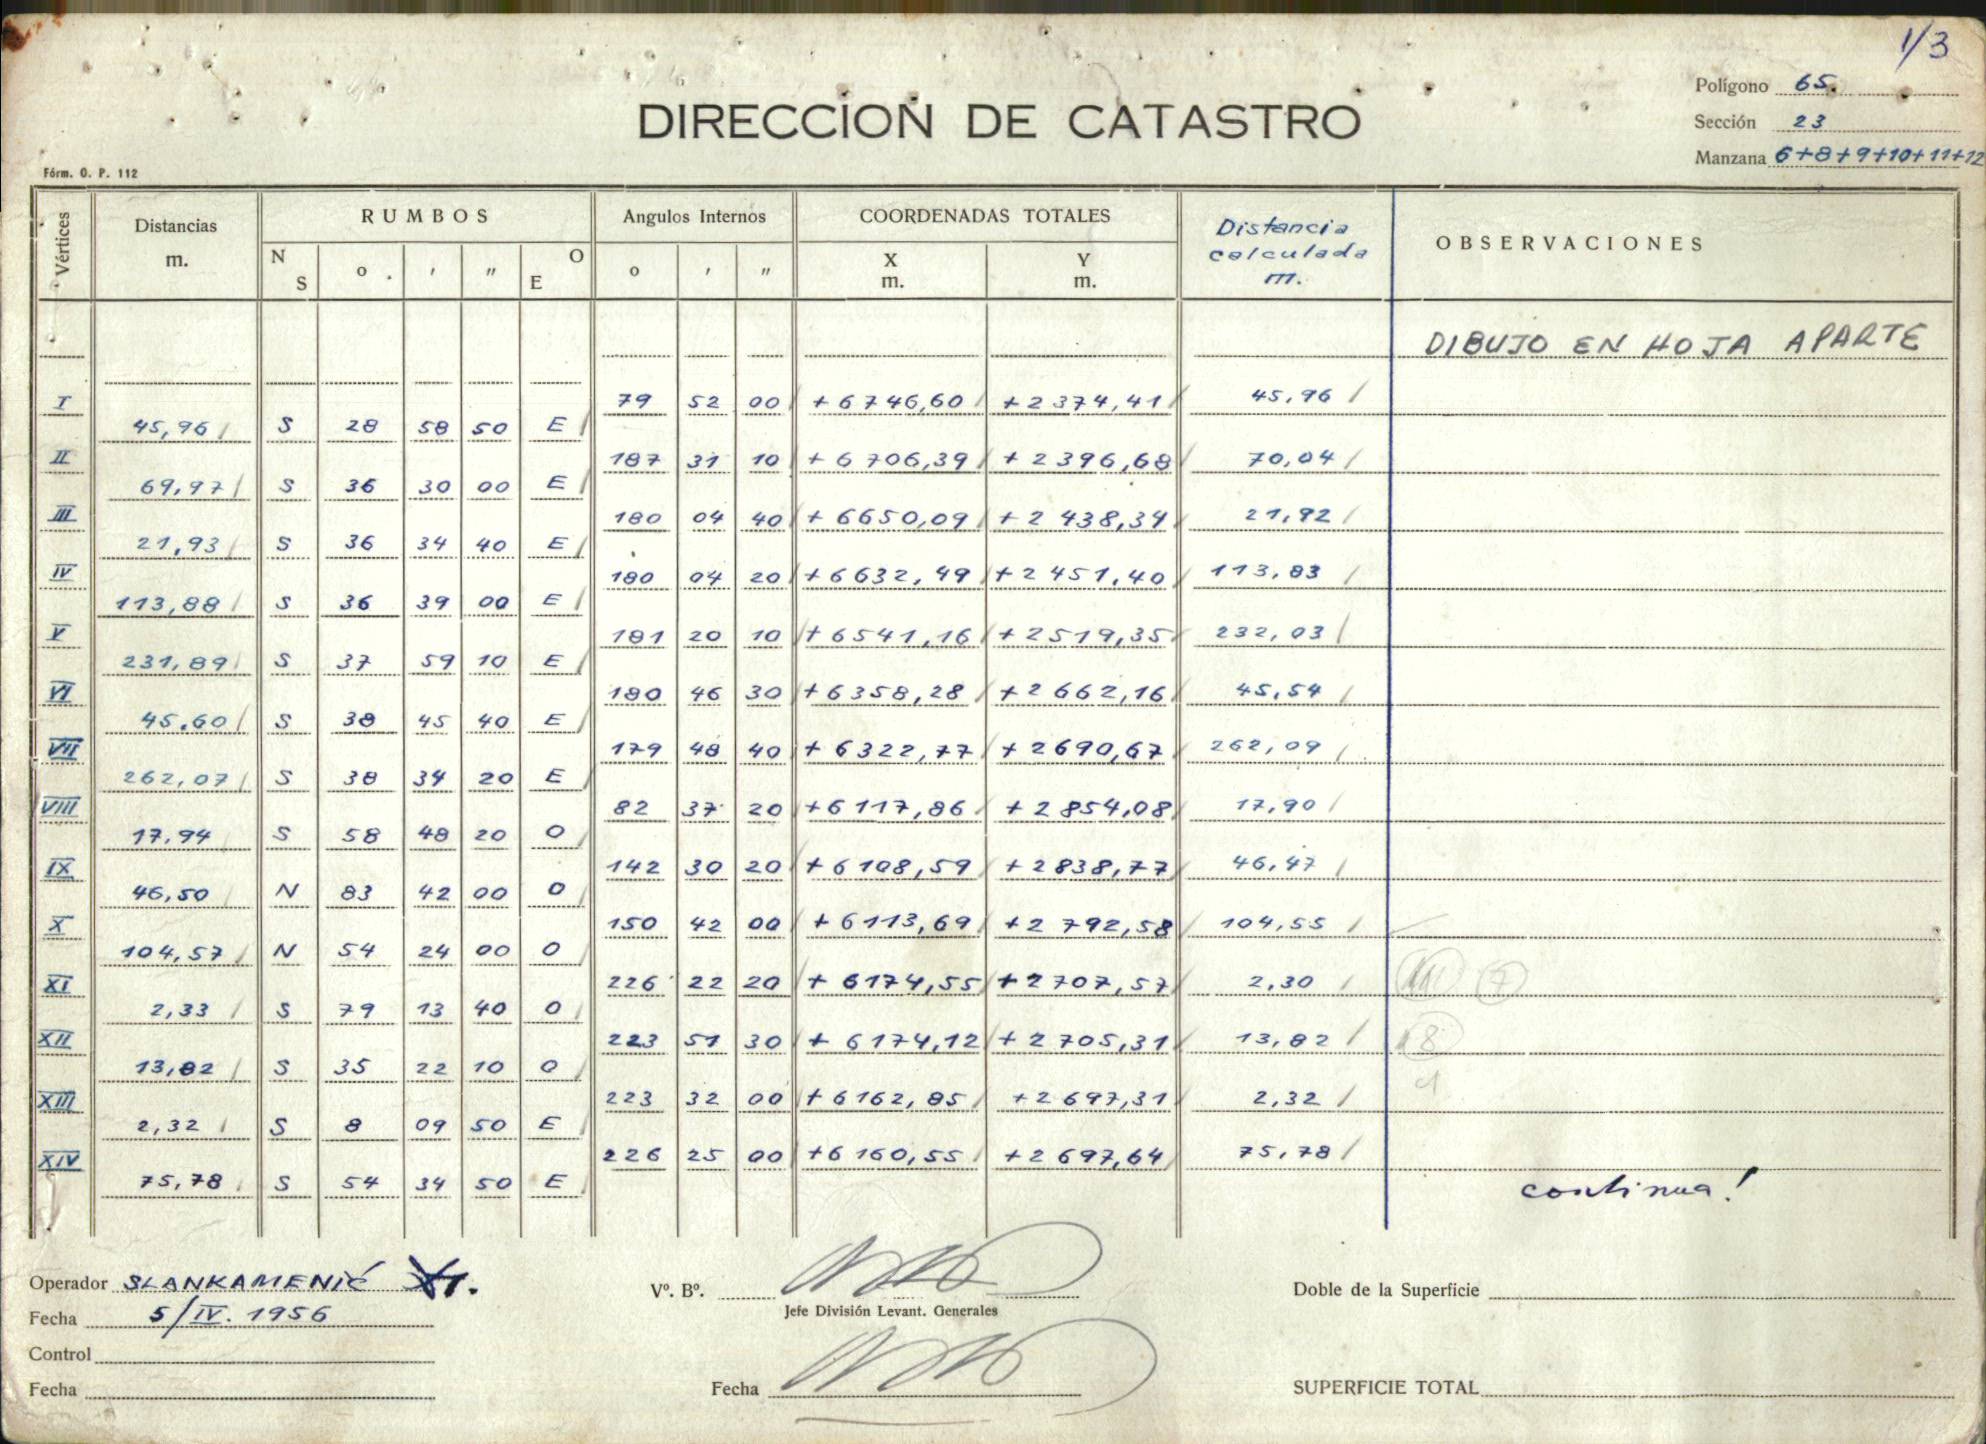 1/3
DIRECCION DE CATASTRO
Polígono 65.
Sección 23
Manzana 6+8+9+10+11+12
Fórm. O. P. 112
Vértices Distancias m. RUMBOS N S o . ' " O E Angulos Internos o ' " COORDENADAS TOTALES X m. Y m. Distancia calculada m. OBSERVACIONES
DIBUJO EN HOJA APARTE
I 79 52 00 +6746,60 +2374,41 45,96
45,96 S 28 58 50 E
II 187 31 10 +6706,39 +2396,68 70,04
69,97 S 36 30 00 E
III 180 04 40 +6650,09 +2438,34 21,92
21,93 S 36 34 40 E
IV 180 04 20 +6632,49 +2451,40 113,83
113,88 S 36 39 00 E
V 181 20 10 +6541,16 +2519,35 232,03
231,89 S 37 59 10 E
VI 180 46 30 +6358,28 +2662,16 45,54
45.60 S 38 45 40 E
VII 179 48 40 +6322,77 +2690,67 262,09
262,07 S 38 34 20 E
VIII 82 37 20 +6117,86 +2854,08 17,90
17,94 S 58 48 20 O
IX 142 30 20 +6108,59 +2838,77 46,47
46,50 N 83 42 00 O
X 150 42 00 +6113,69 +2792,58 104,55
104,57 N 54 24 00 O
XI 226 22 20 +6174,55 +2707,57 2,30 7
2,33 S 79 13 40 O
XII 223 51 30 +6174,12 +2705,31 13,82 8
13,82 S 35 22 10 O
XIII 223 32 00 +6162,85 +2697,31 2,32
2,32 S 8 09 50 E
XIV 226 25 00 +6160,55 +2697,64 75,78
75,78 S 54 34 50 E
continua!
Operador SLANKAMENIĆ
Fecha 5/IV. 1956
Control
Fecha
Vº. Bº.
Jefe División Levant. Generales
Fecha
Doble de la Superficie
SUPERFICIE TOTAL